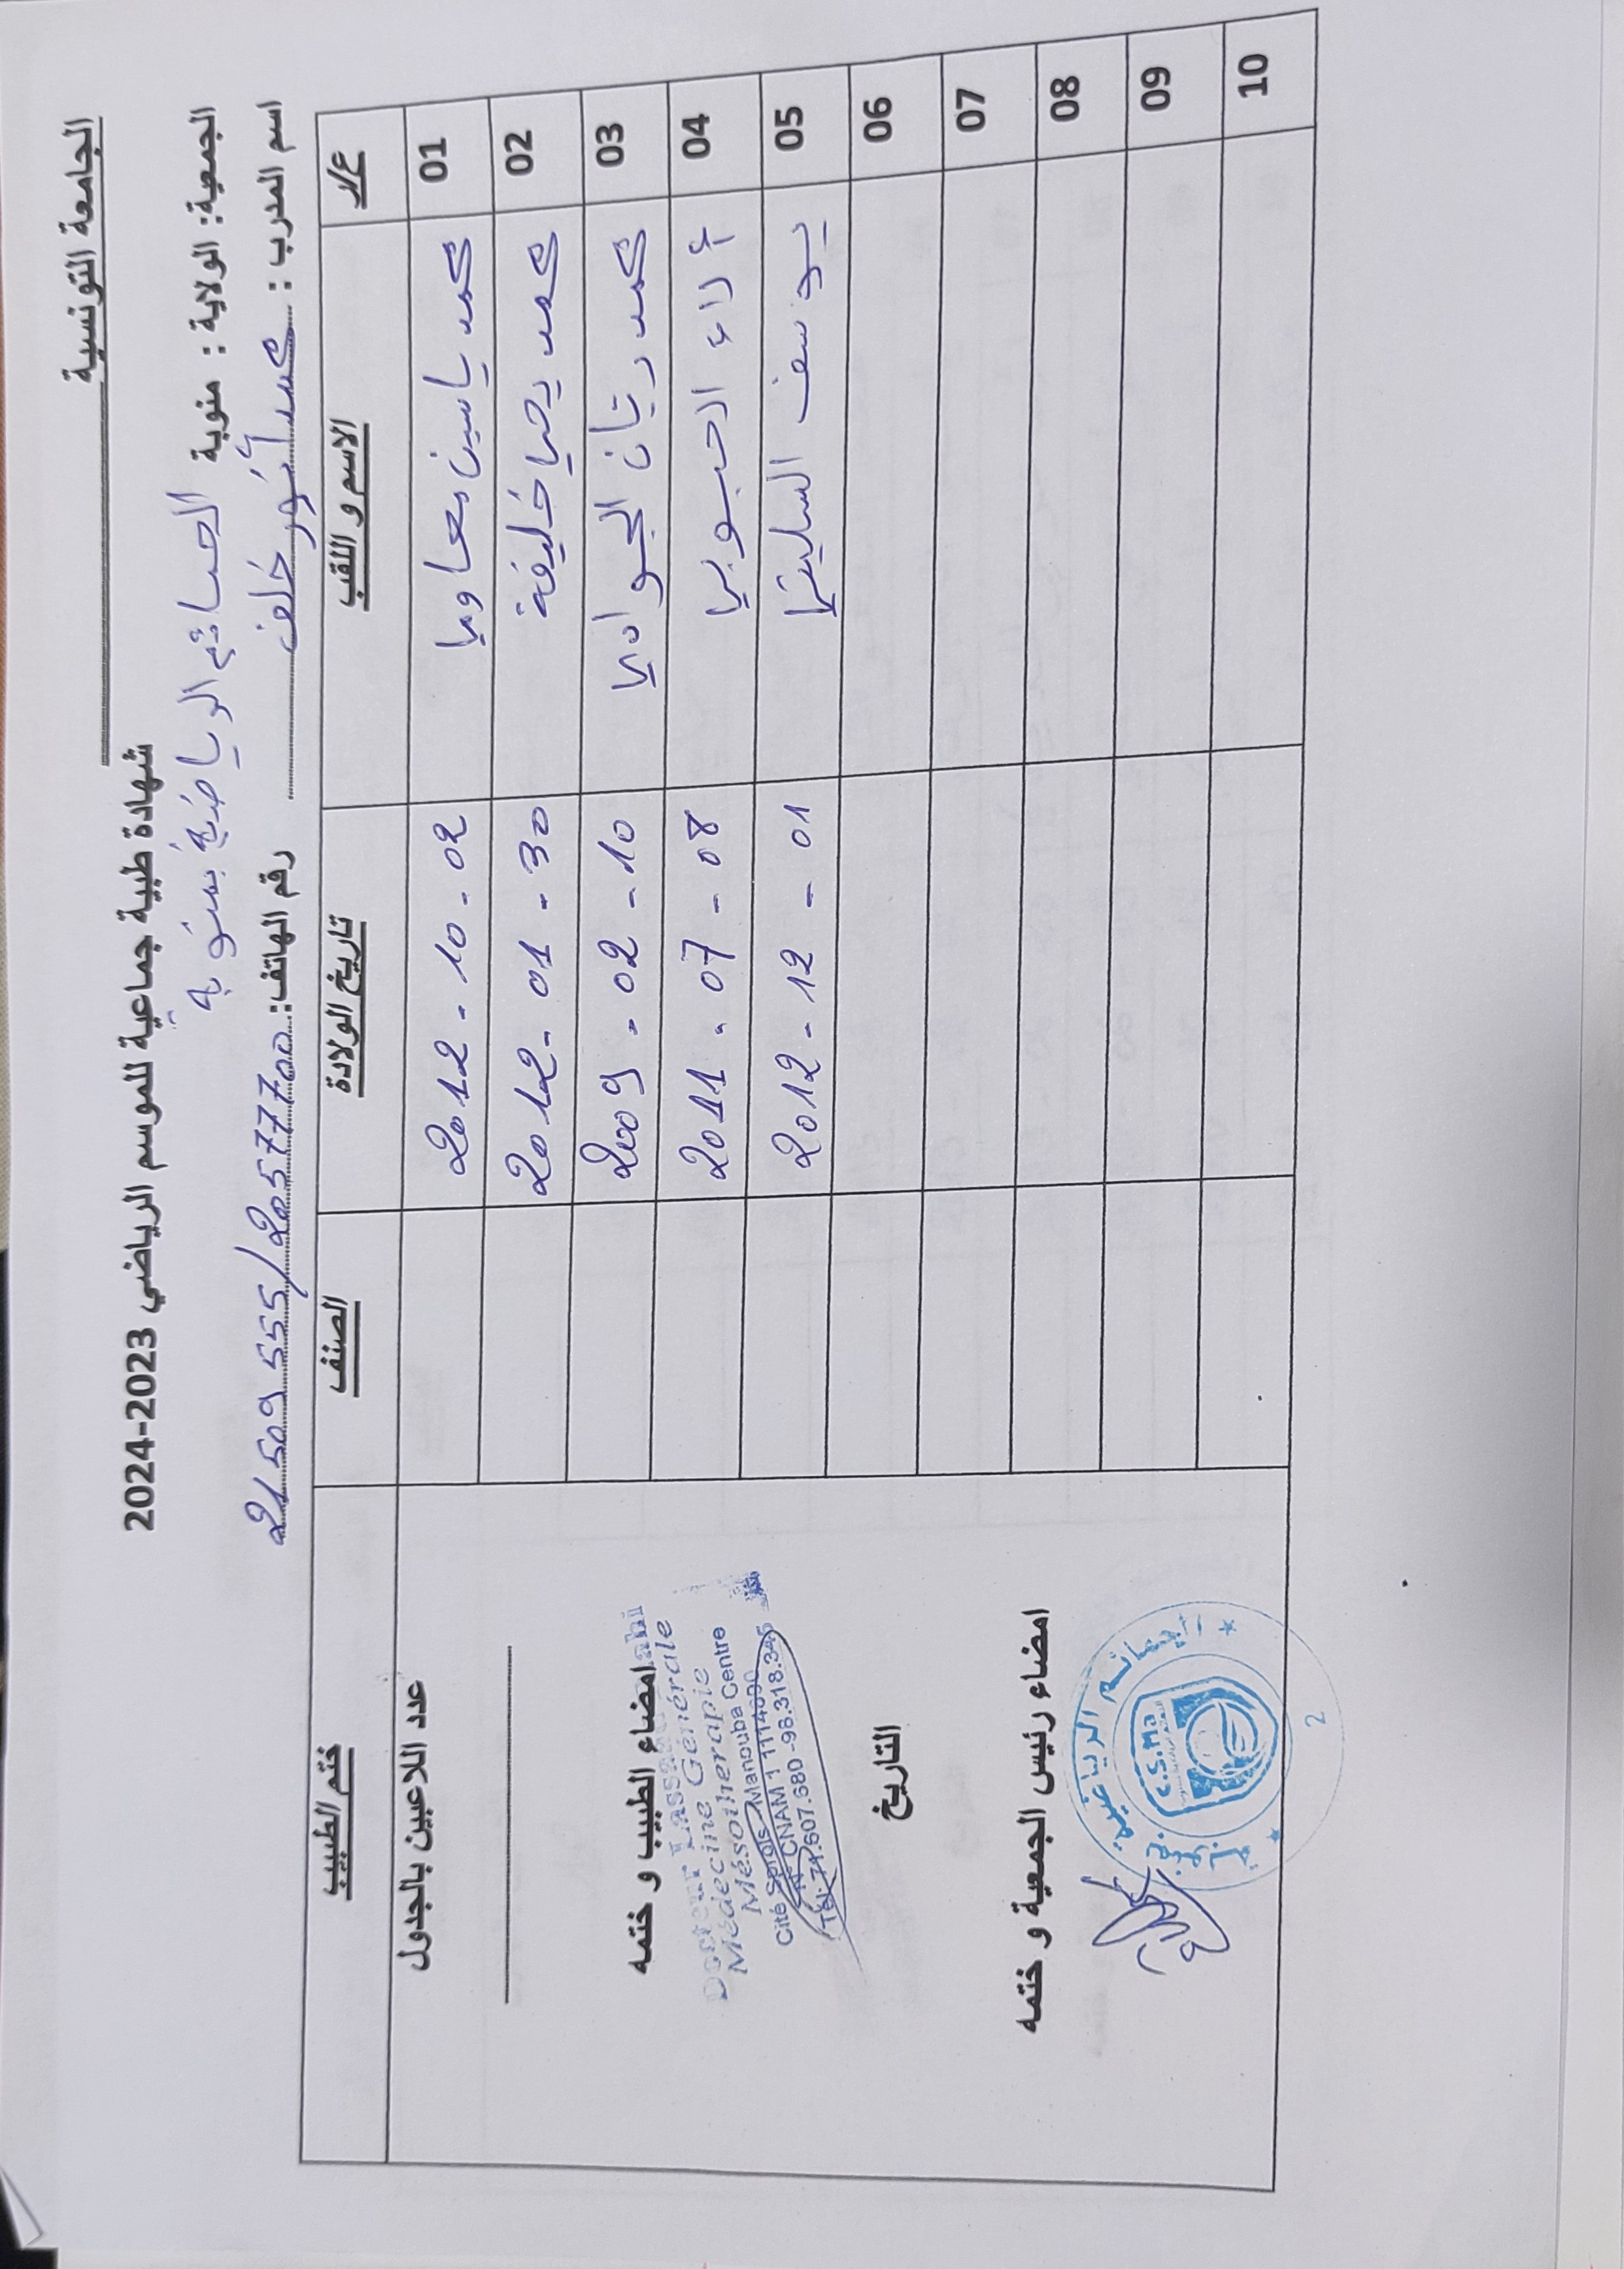 الجامعة التونسية
شهادة طبية جماعية للموسم الرياضي 2023-2024
الجمعية: الولاية : منوبة الحمائم الرياضية بمنوبة
اسم المدرب : محمد أنور خلف رقم الهاتف: 21509555/20577700
ع/ر الاسم و اللقب تاريخ الولادة الصنف ختم الطبيب
01 محمد ياسين معاوي 2012 - 10 - 02
02 محمد يحيا خليفة 2012 - 01 - 30
03 محمد ريان الجوادي 2009 - 02 - 10
04 ألاء الحبوبي 2011 - 07 - 08
05 يوسف السليتي 2012 - 12 - 01
06
07
08
09
10
عدد اللاعبين بالجدول
امضاء الطبيب و ختمه
Docteur Lassaad
Médecine Générale
Mésotherapie
Cité Manouba Centre
N° CNAM 1 1114690
Tél: 71.607.680 -98.318.345
التاريخ
امضاء رئيس الجمعية و ختمه
الحمائم الرياضية
C.S.Ma
2